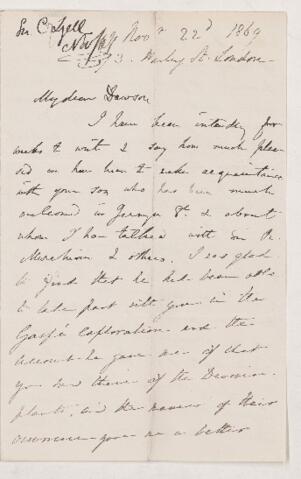 Sir C Lyell
Nov 22d 1869
73 Harley St. London
My dear Dawson
I have been intending for
weeks to write & say how much plea-
sed we have been to make acquaintance
with your son who has been much
welcomed in & about
whom I have talked with Sir R.
Murchison & others. I was glad
to find that he had been able
to take part with you in the
Gaspé exploration and the
account he gave me of that
you and theirs of the Devonian
plants, and the manner of their
occurrence gave me a better